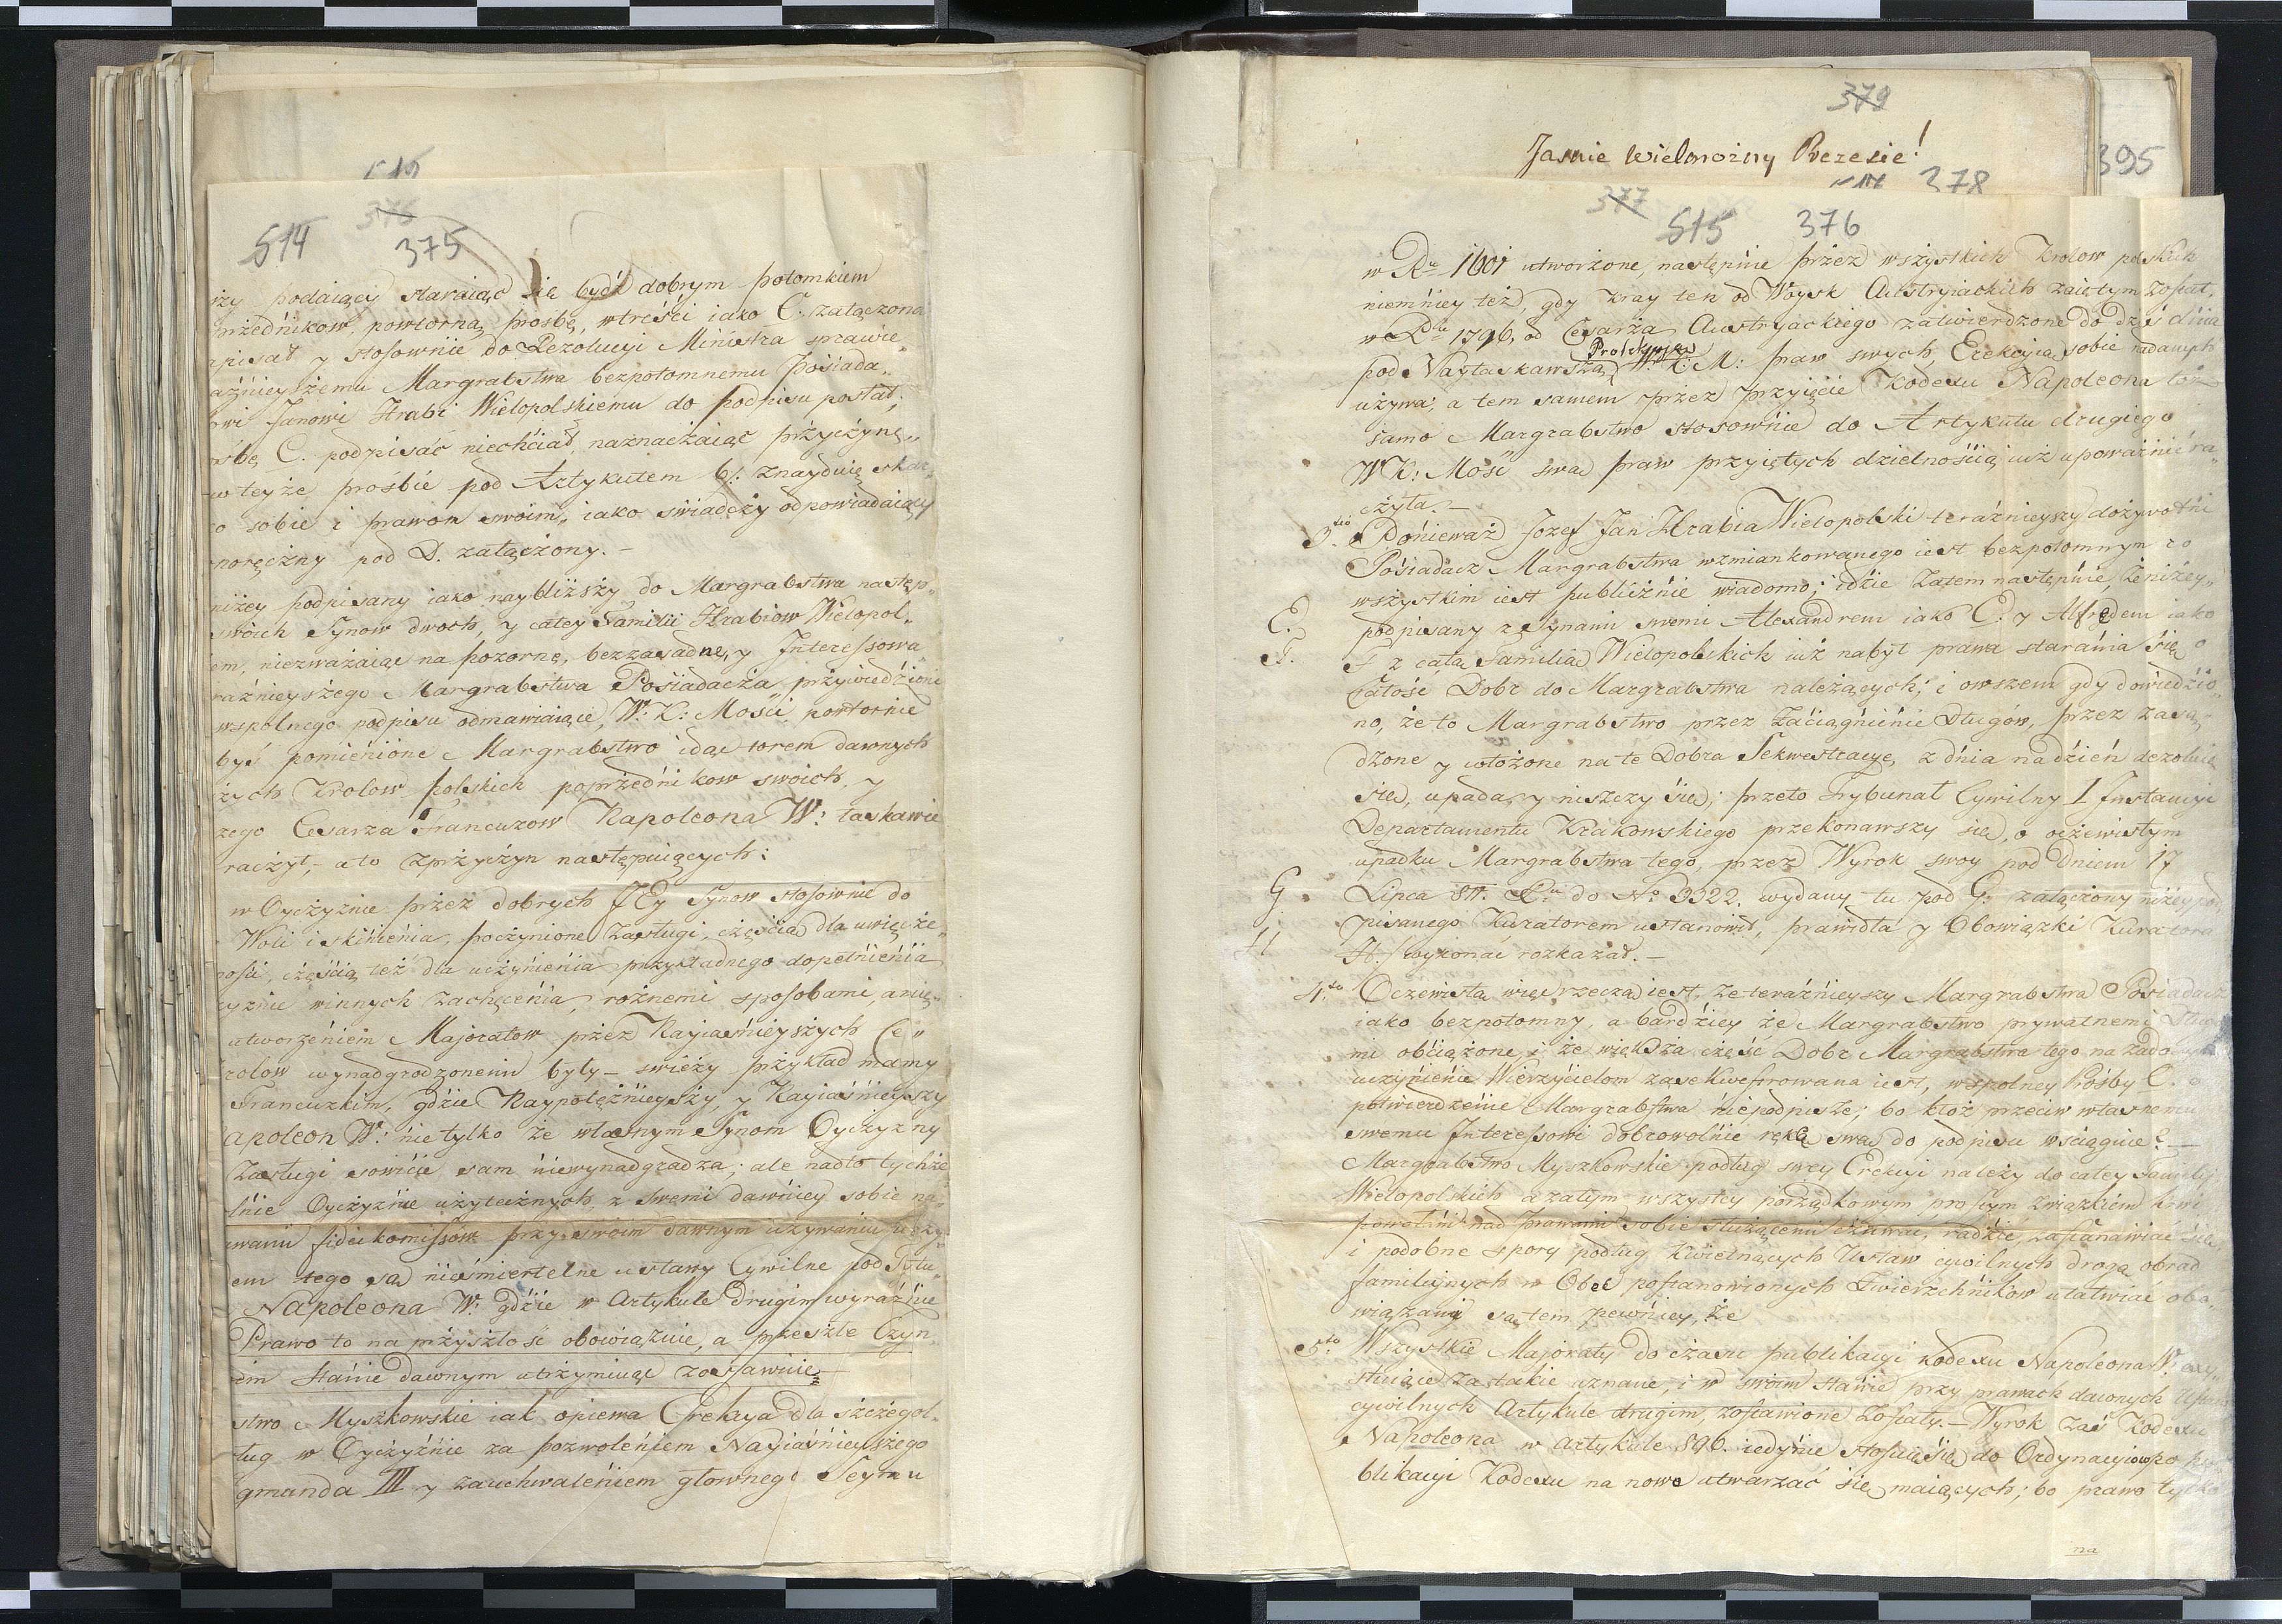 519
376
514
375
ży podaiący staraiąc się bydź dobrym potomkiem
przednikow powtorną prosbę, wtreści iako C. załączona
apisał y stosownie do Rezolucyi Ministra sprawie„
aźnieyszemu Margrabstwa bezpotomnemu Posiada„
owi Janowi Hrabi Wielopolskiemu do podpisu posłał;
osbę C. podpisać niechciał, naznaczaiąc przyczynę„
w teyże prośbie pod Artykułem 6. znayduię
o sobie i prawom swoim„ iako świadczy odpowiadaiący
noręczny pod D. załączony.–
niżey podpisany iako naybliższy do Margrabstwa następ„
swoich Synow dwoch, y całey Familii Hrabiow Wielopol„
em, niezważaiąc na pozorne, bezzasadne, y Interessowa
raźnieyszego Margrabstwa Posiadacza przywiedzione
wspolnego podpisu odmawiaiące, W: K: Mości powtornie
być pomienione Margrabstwo idąc torem dawnych
zych Krolow polskich poprzednikow swoich, y
zego Cesarza Francuzow Napoleona W: łaskawie
raczył,– a to z przyczyn następuiących:
w Oyczyznie przez dobrych JEy Synow stosownie do
Woli i skinienia, poczynione Zasługi, częścią dla uwięcze„
ności, częścią też dla uczynienia przykładnego dopełnienia
yznie winnych zachęcenia, rożnemi sposobami, a nię„
utworzeniem Majoratow przez Nayiaśnieyszych Ce„
rolow wynadgrodzonemi były – swieży przykład mamy
Francuzkim, gdzie Naypotężnieyszy, y Nayiaśnieyszy
apoleon W: nie tylko że własnym Synom Oyczyzny
Zasługi sowicie sam niewynadgradza; ale nadto tychże
lnie Oyczyznie użytecznych, z swemi dawniey sobie na„
waniu fidei komissow przy swoim dawnym używaniu
em tego są nieśmiertelne ustawy Cywilne pod Tytu„
Napoleona W: gdzie w Artykule drugim wyraźnie
Prawo to na przyszłość obowiązuie, a przeszłe Czyn„
im stanie dawnym utrzymuiąc zostawuie
stwo Myszkowskie iak opiewa Erekcya dla szczegol„
ług w Oyczyźnie za pozwoleniem Nayiaśnieyszego
gmunda III y zauchwaleniem głownego Seymu
379
Jasnie Wielmożny Prezesie!
395
378
377
515
376
w Ru 1601 utworzone, następnie przez wszystkich Krolow polskich
niemniey też, gdy Kray ten od Woysk Austryiackich zaiętym został,
w Ru 1796, od Cesarza Austryackiego zatwierdzone do dziś dnia
Protekcyą
pod Nayłaskawszą W: K: M: praw swych, Erekcyą sobie nadanych
używa; a tem samem przez przyięcie Kodexu Napoleona to
samo Margrabstwo stosownie do Artykułu drugiego
W K: Mość swą praw przyiętych dzielnością już upoważnić ra„
czyła.–
3tio Ponieważ Jozef Jan Hrabia Wielopolski teraźnieyszy dożywotni
Posiadacz Margrabstwa wzmiankowanego iest bezpotomnym co
wszystkim iest publicznie wiadomo; idzie zatem następnie, że niżey„
E. podpisany z Synami swemi Alexandrem iako E. y Alfredem iako
F. F z całą Familią Wielopolskich już nabył prawa starania się o
całość Dobr do Margrabstwa należących; i owszem gdy dowiedzio„
no, że to Margrabstwo przez Zaciągnienie Długów, przez zasą„
dzone y włożone na te Dobra Sekwestracye, z dnia na dzień dezoluie
się, upada, y niszczy się; przeto Trybunał Cywilny I Instancyi
Departamentu Krakowskiego przekonawszy się, o oczewistym
upadku Margrabstwa tego, przez Wyrok swoy pod Dniem 17
G. Lipca 811. Ru do No 3322. wydany, tu pod G. załączony niżey pod„
pisanego Kuratorem ustanowił, prawidła y Obowiązki Kuratora
H H. wykonać rozkazał.–
4to Oczewistą więc rzeczą iest, że teraźnieyszy Margrabstwa Posiadacz
iako bezpotomny, a bardziey że Margrabstwo prywatnemi
mi obciążone, i że większa część Dobr Margrabstwa tego na zado„
uczynienie Wierzycielom zasekwestrowana iest, wspolney Prośby C.
potwierdzenie Margrabstwa niepodpisze; bo ktoż przeciw własnemu
swemu Interessowi dobrowolnie rękę swą do podpisu wściągnie?–
Margrabstwo Myszkowskie podług swey Erekcyi należy do całey Familij
Wielopolskich a zatym wszyscy porządkowym prostym związkiem krwi
powołani nad prawami sobie służącemi czuwać, radzić, zastanawiać się
i podobne spory podług Kwitnących Ustaw cywilnych drogą obrad
familijnych w Obec postanowionych Zwierzchnikow ułatwiać obo„
wiązani są, tem pewniey, że
5to Wszystkie Majoraty do czasu publikacyi Kodexu Napoleona W: exy„
stuiące za takie uznane, i w swoim stanie przy prawach dawnych
cywilnych Artykule drugim, zostawione zostały.– Wyrok zaś Kodexu
Napoleona w Artykule 896. iedynie stosuie się do Ordynacyiow po pu„
blikacyi Kodexu na nowo utwarzać się maiących; bo prawo tylko
na